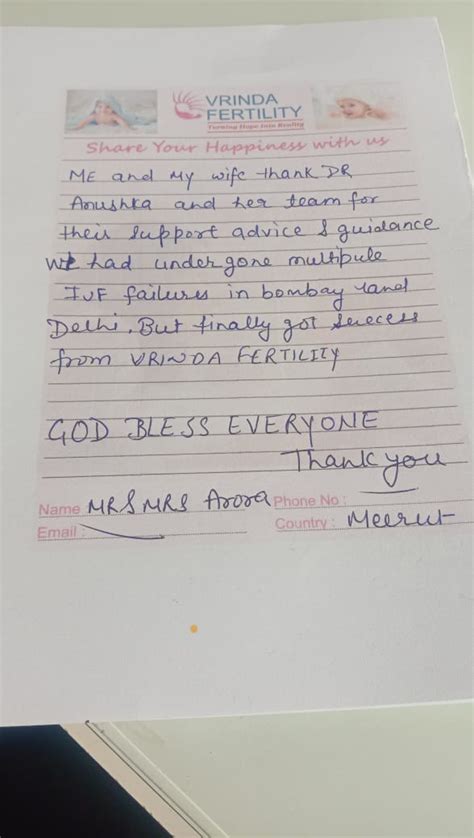 VRINDA
FERTILITY
Turning Hope Into Reality
Share Your Happiness with us
ME and My wife thank DR
Anushka and her team for
their support advice & guidance
We had under gone multipule
IVF failures in bombay and
Delhi. But finally got success
from VRINDA FERTILITY
GOD BLESS EVERYONE
Thank you
Name MR & MRS Arora Phone No :
Email : Country : Meerut